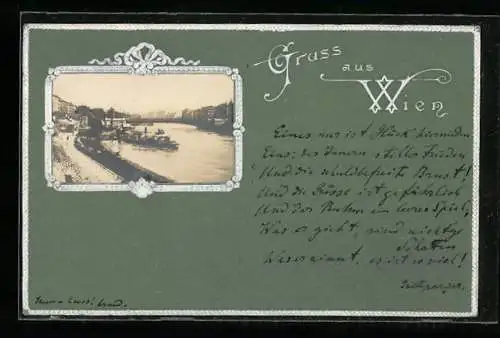 Gruss
aus
Wien
Eines nur ist Glück hienieden
Eins: des Innern stiller Frieden
Und die schuldbefreite Brust!
Und die Größe ist gefährlich
Und der Ruhm ein leeres Spiel;
Was er gibt, sind nichtge
Schatten
Was er nimmt, es ist so viel!
Grillparzer.